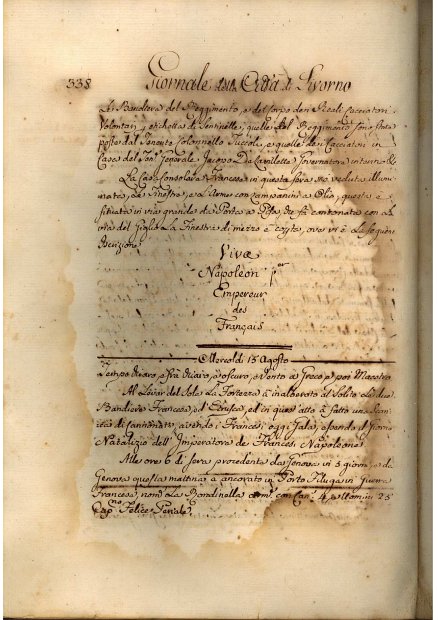 338 Giornale della Città di Livorno
La Bandiera del Reggimento, e del Corso dei Reali Cacciatori
Volontari, e etichetta di Sentinelle, quelle del Reggimento sono state
poste dal Tenente Colonnello Tuccoli, e quelle dei Cacciatori in
Casa del Gen. Generale Jacopo De Laville Governatore
La Casa Consolare Francese in questa sera si è veduta illumi-
nata, le Finestre, e l'Arme con campanini a Olio, questa è
situata in via grande da Porta a Pisa, che fa cantonata con la
via del Giglio la Finestra di mezzo è coperta, ove vi è la seguente
Iscrizione
Vive
Napoleon per
Empereur
des
Français
Mercoldì 15 Agosto
Tempo chiaro, e frà chiaro, e oscuro, e Vento à Greco, e poi Maestro
Al Levar del Sole La Fortezza à inalberato al Solito le due
Bandiere Francese, ed Etrusca, ed in quest'atto à fatto uno Scari-
ca di cannonate, avendo i Francesi oggi Gala, essendo il giorno
Natalizio dell' Imperatore de Francesi Napoleone
Alle ore 6 di sera procedente da Genova in 3 giorni, e da
Genova questa mattina à ancorato in Porto Filuga in Guerra
Francese, nom. La Rondinella arm. con Can. 4. e Uomini 25
Capno Felice